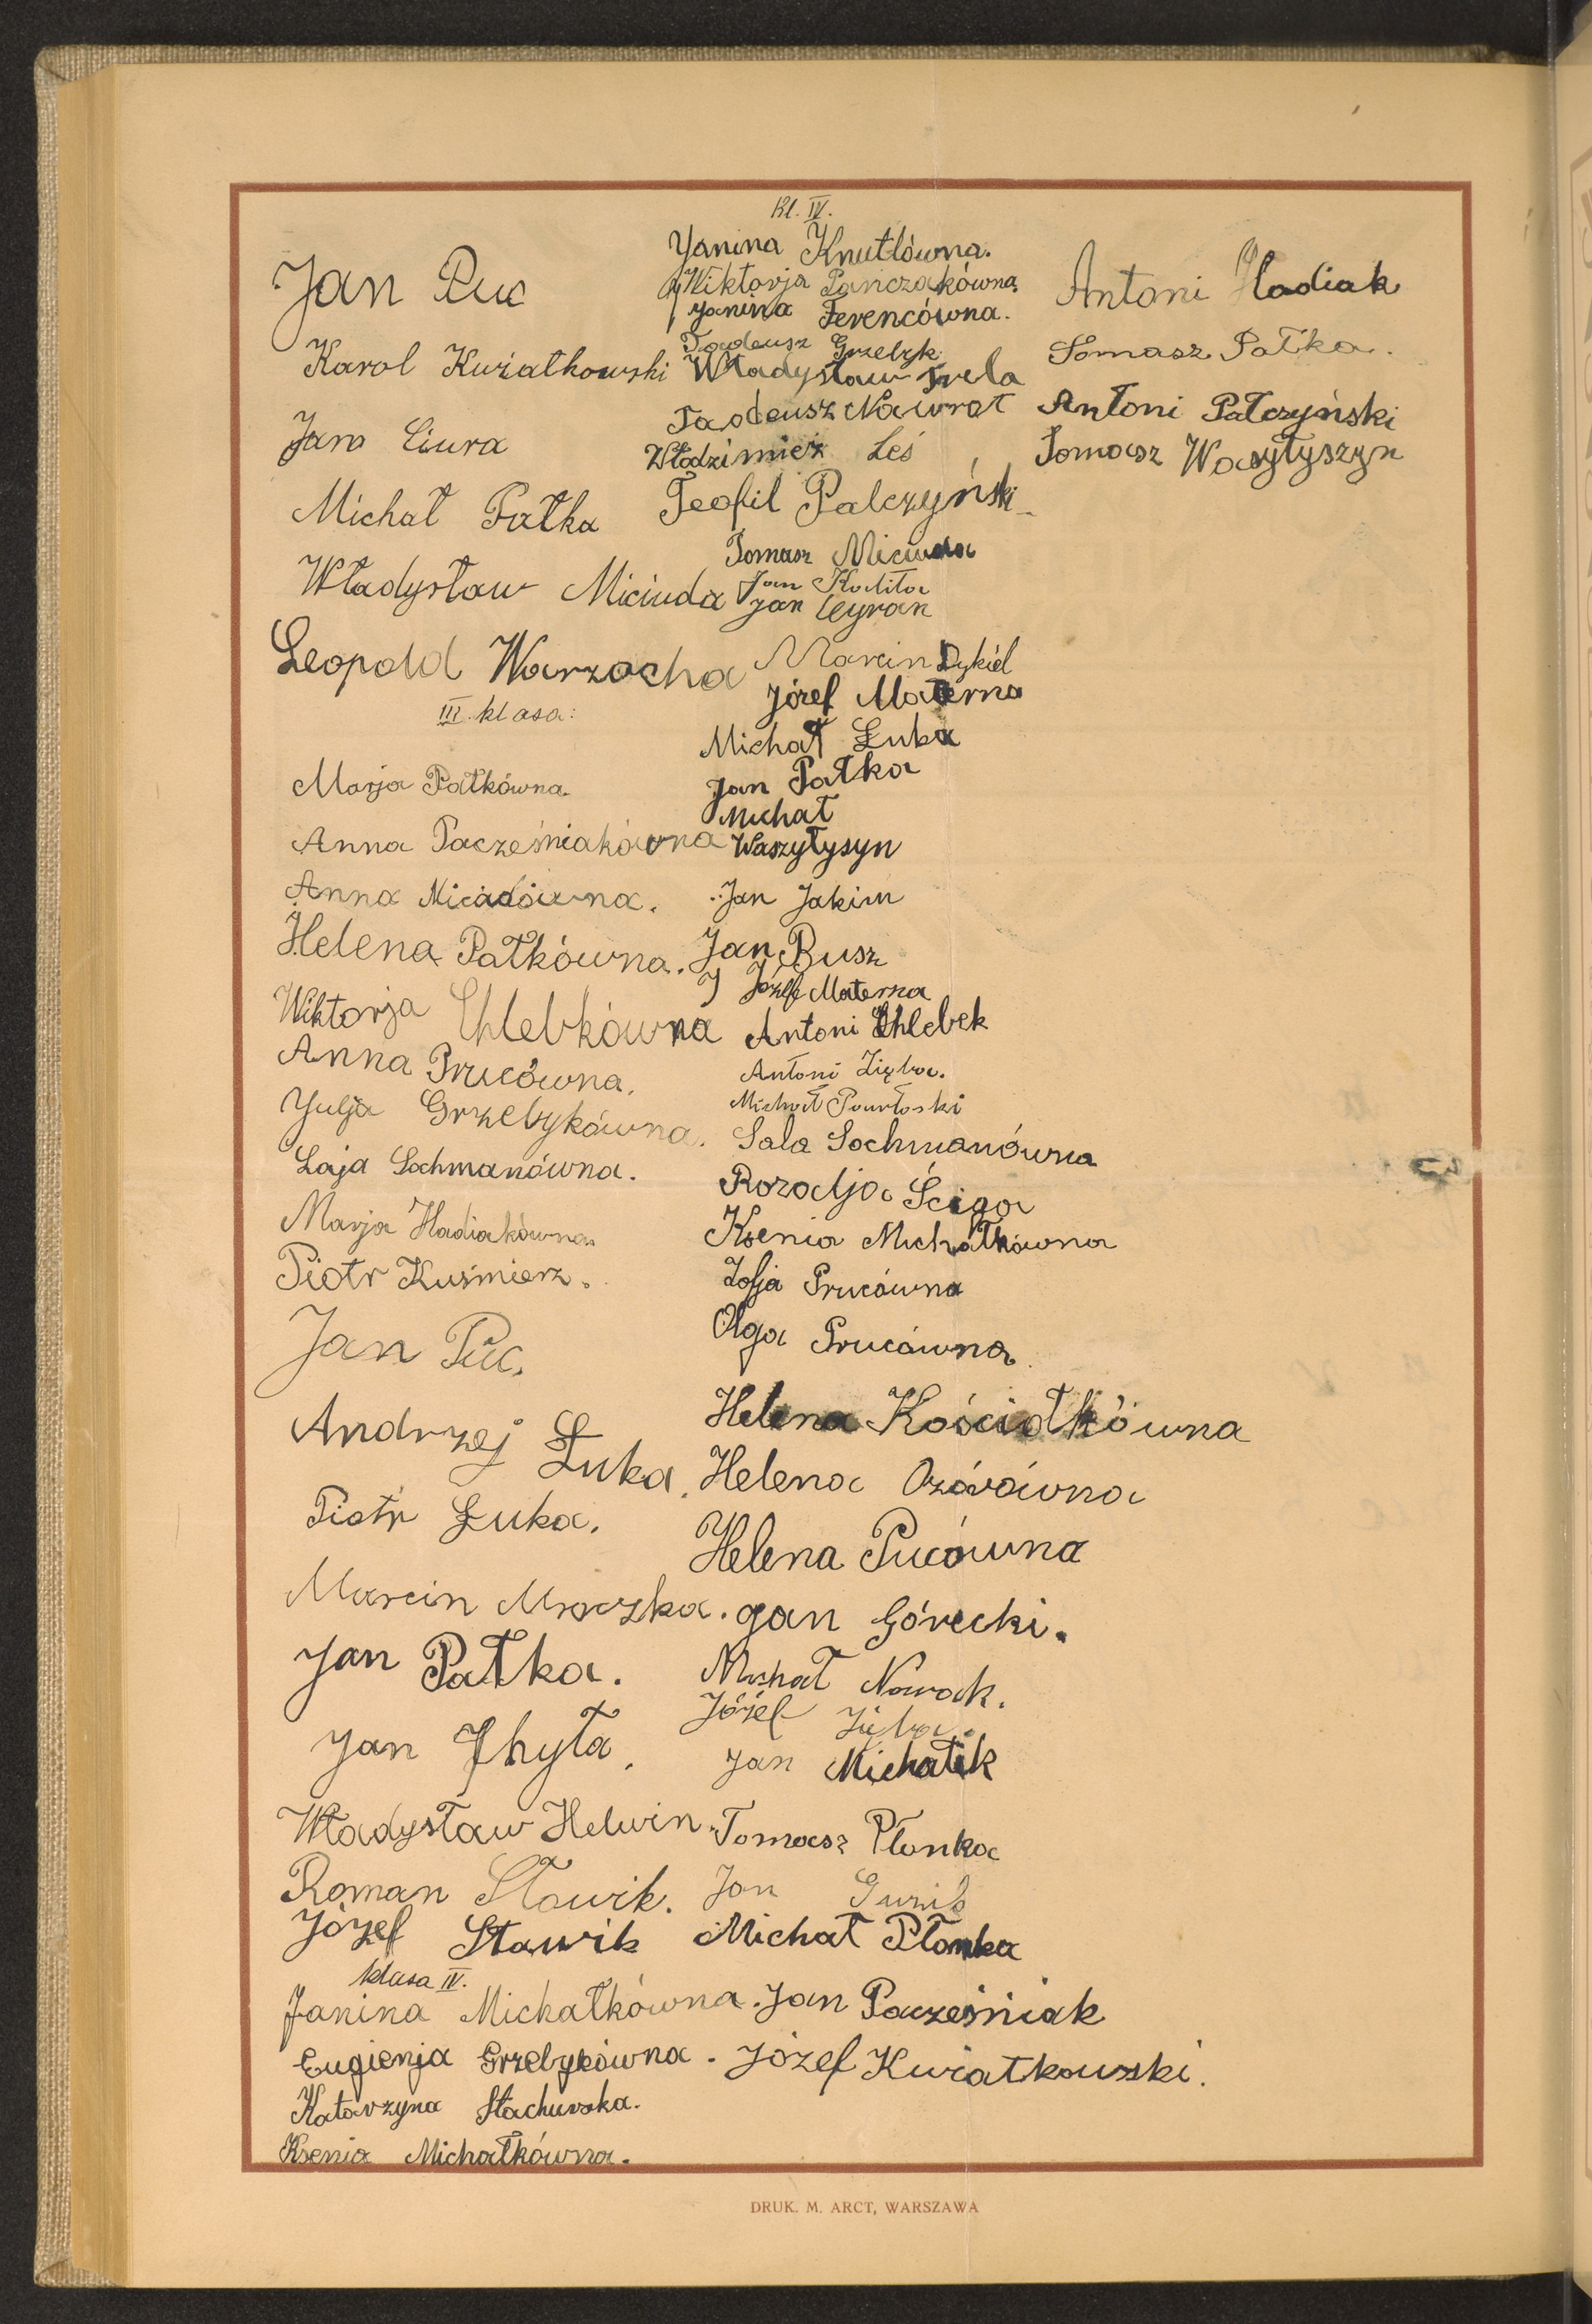 Jan Puc
Karol Kwiatkowski
Jan Ciura
Michał Pałka
Władysław Miciuda
Leopold Warzocha
III. klasa:
Marja Pałkówna.
Anna Pacześniakówna
Anna Miciudówna.
Helena Pałkówna.
Wiktorja Chlebkówna
Anna Prucówna.
Julja Grzebykówna.
Łaja Sochmanówna.
Marja Hadiakówna.
Piotr Kuśmierz.
Jan Puc.
Andrzej Łuka.
Piotr Łuka.
Marcin Mroczka.
Jan Pałka.
Jan Chyła.
Władysław Helwin.
Roman Sławik.
Józef Sławik
klasa IV.
Janina Michałkówna.
Eugienja Grzebykówna.
Katarzyna Stachurska.
Ksenia Michałkówna.
Kl. IV.
Janina Knutlówna.
Wiktorja Panczakówna.
Janina Ferencówna.
Tadeusz Grzebyk
Władysław
Tadeusz Nawrot
Włodzimież Leś
Teofil Palczyński
Tomasz Miciuda
Jan
Jan Ceyran
Marcin Dykiel
Józef Materna
Michał Łuka
Jan Pałka
Michał
Waszyłysyn
Jan Jakim
Jan Busz
J Józef Materna
Antoni Chlebek
Antoni Zięba.
Michał Pawłoski
Sala Sochmanówna
Rozalja Ściga
Ksenia Michałkówna
Zofja Prucówna
Olga Prucówna
Helena Kościołkówna
Helena Ozórówna
Helena Pucówna
Jan Górecki.
Michał Nowak.
Józef Zięba.
Jan Michalik
Tomasz Płonka
Jan
Michał Płonka
Jan Pacześniak
Józef Kwiatkowski.
Antoni Hadiak
Tomasz Pałka.
Antoni Pałczyński
Tomasz Wasyłyszyn
DRUK. M. ARCT, WARSZAWA